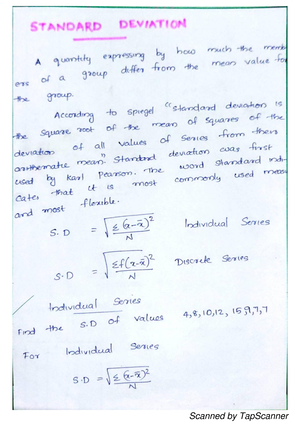 STANDARD DEVIATION
A quantity expressing by how much the memb
ers of a group differ from the mean value for
the group.
According to spiegel "standard deviation is
the square root of the mean of squares of the
deviation of all values of series from their
arithmatic mean" Standard deviation was first
used by Karl Pearson. The word standard indi-
cates that it is most commonly used meas
and most flexible.
S.D = √Σ(x-x̄)²/N Individual Series
S.D = √Σf(x-x̄)²/N Discrete Series
Individual Series
Find the S.D of values 4,8,10,12, 15,9,7,7
For Individual Series
S.D = √Σ(x-x̄)²/N
Scanned by TapScanner